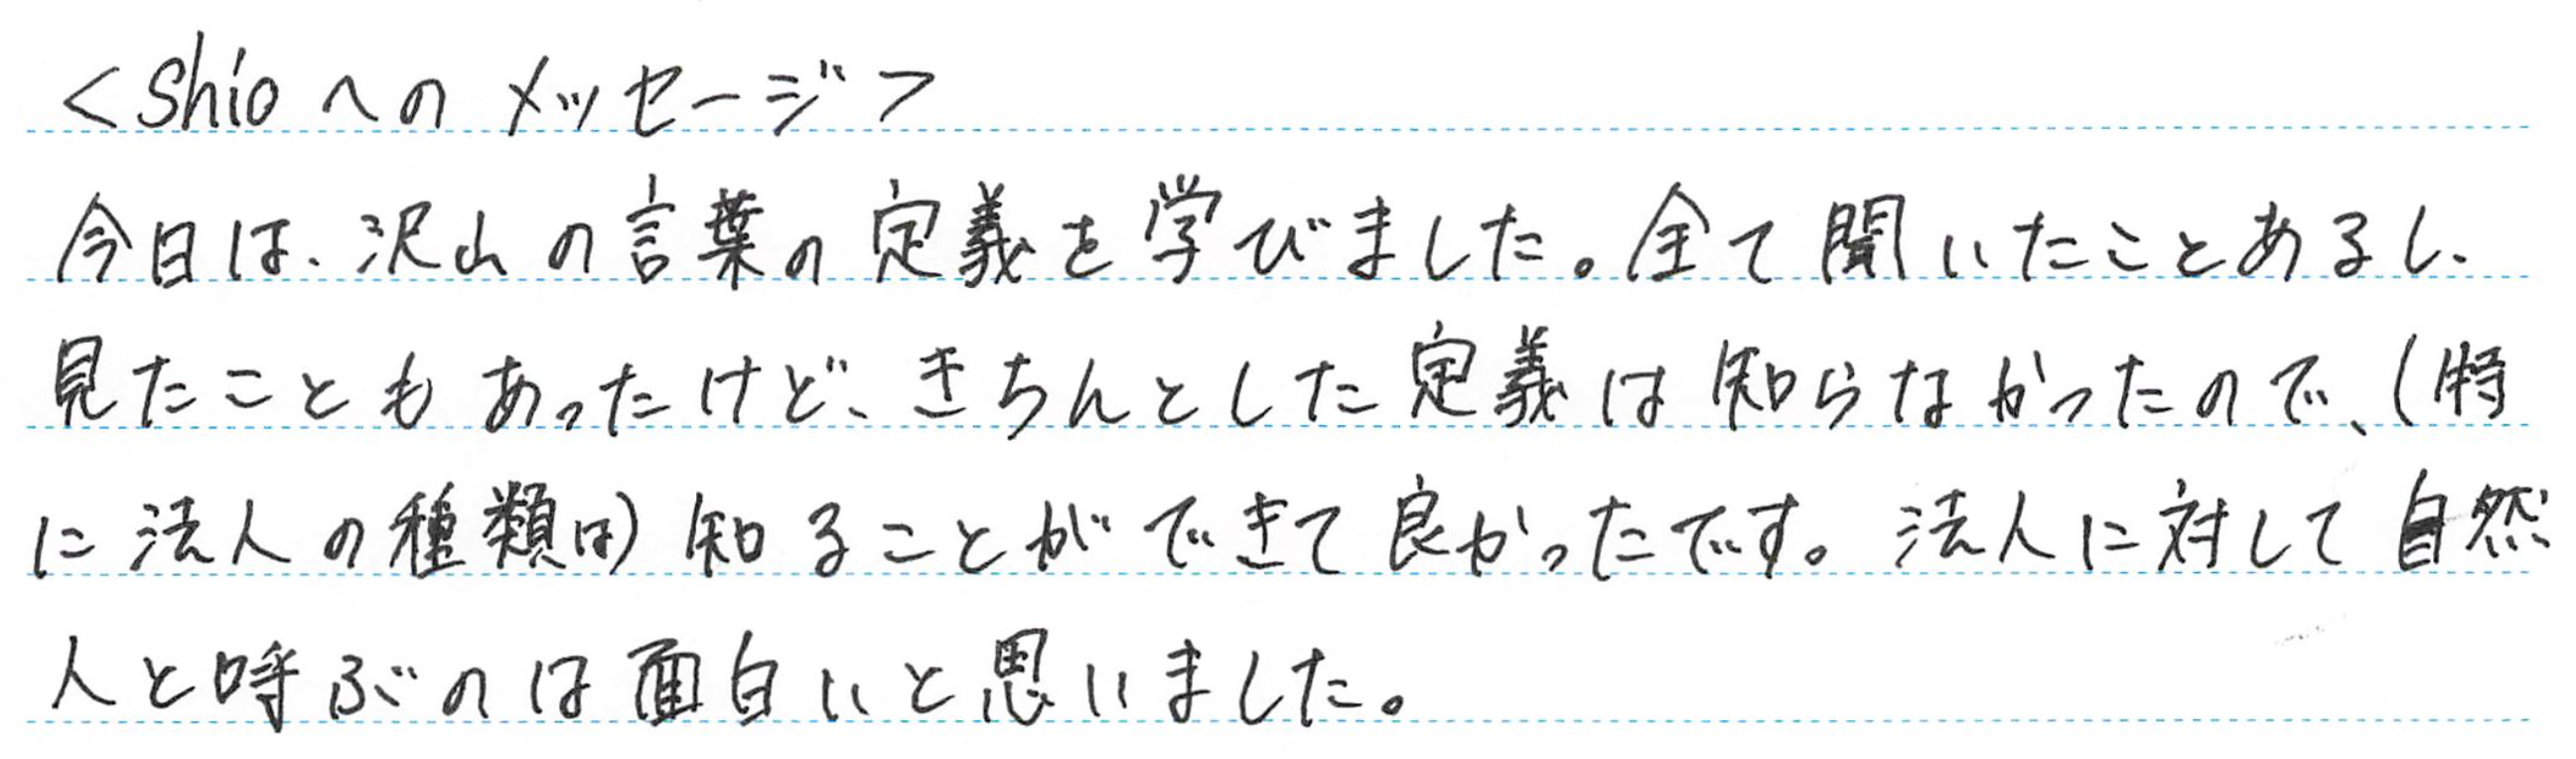 <Shioへのメッセージ>
今日は、沢山の言葉の定義を学びました。全て聞いたことあるし、
見たこともあったけど、きちんとした定義は知らなかったので、(特
に法人の種類は)知ることができて良かったです。法人に対して自然
人と呼ぶのは面白いと思いました。